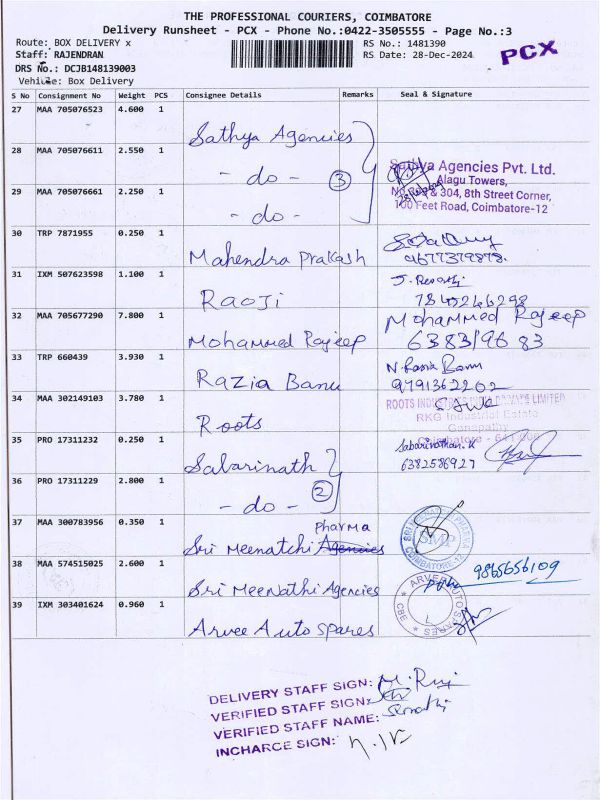 THE PROFESSIONAL COURIERS, COIMBATORE
Delivery Runsheet - PCX - Phone No.:0422-3505555 - Page No.:3
Route: BOX DELIVERY x
RS No.: 1481390
Staff: RAJENDRAN
RS Date: 28-Dec-2024
PCX
DRS No.: DCJB148139003
Vehicle: Box Delivery
S No Consignment No Weight PCS Consignee Details Remarks Seal & Signature
27 MAA 705076523 4.600 1
Sathya Agencies
28 MAA 705076611 2.550 1
- do - 3
Sathya Agencies Pvt. Ltd.
Alagu Towers,
& 304, 8th Street Corner,
100 Feet Road, Coimbatore-12
29 MAA 705076661 2.250 1
- do -
30 TRP 7871955 0.250 1
Mahendra Prakash
31 IXM 507623598 1.100 1
Raoji
J. Revathi
32 MAA 705677290 7.800 1
Mohammed Rajeep
Mohammed Rajeep
33 TRP 660439 3.930 1
Razia Banu
9791362202
34 MAA 302149103 3.780 1
Roots
ROOTS INDUSTRIES INDIA PRIVATE LIMITED
RKG Industrial Estate
Ganapathy
Coimbatore - 641 006
35 PRO 17311232 0.250 1
Sabarinath
Sabarinathan. K
6382586927
36 PRO 17311229 2.800 1
- do - 2
37 MAA 300783956 0.350 1
Pharma
Sri Meenatchi Agencies
SMP
COIMBATORE-12
38 MAA 574515025 2.600 1
Sri Meenathi Agencies
9865656109
39 IXM 303401624 0.960 1
Arvee Auto Spares
ARVEE AUTO SPARES
CBE
DELIVERY STAFF SIGN:
VERIFIED STAFF SIGN:
VERIFIED STAFF NAME:
INCHARGE SIGN: